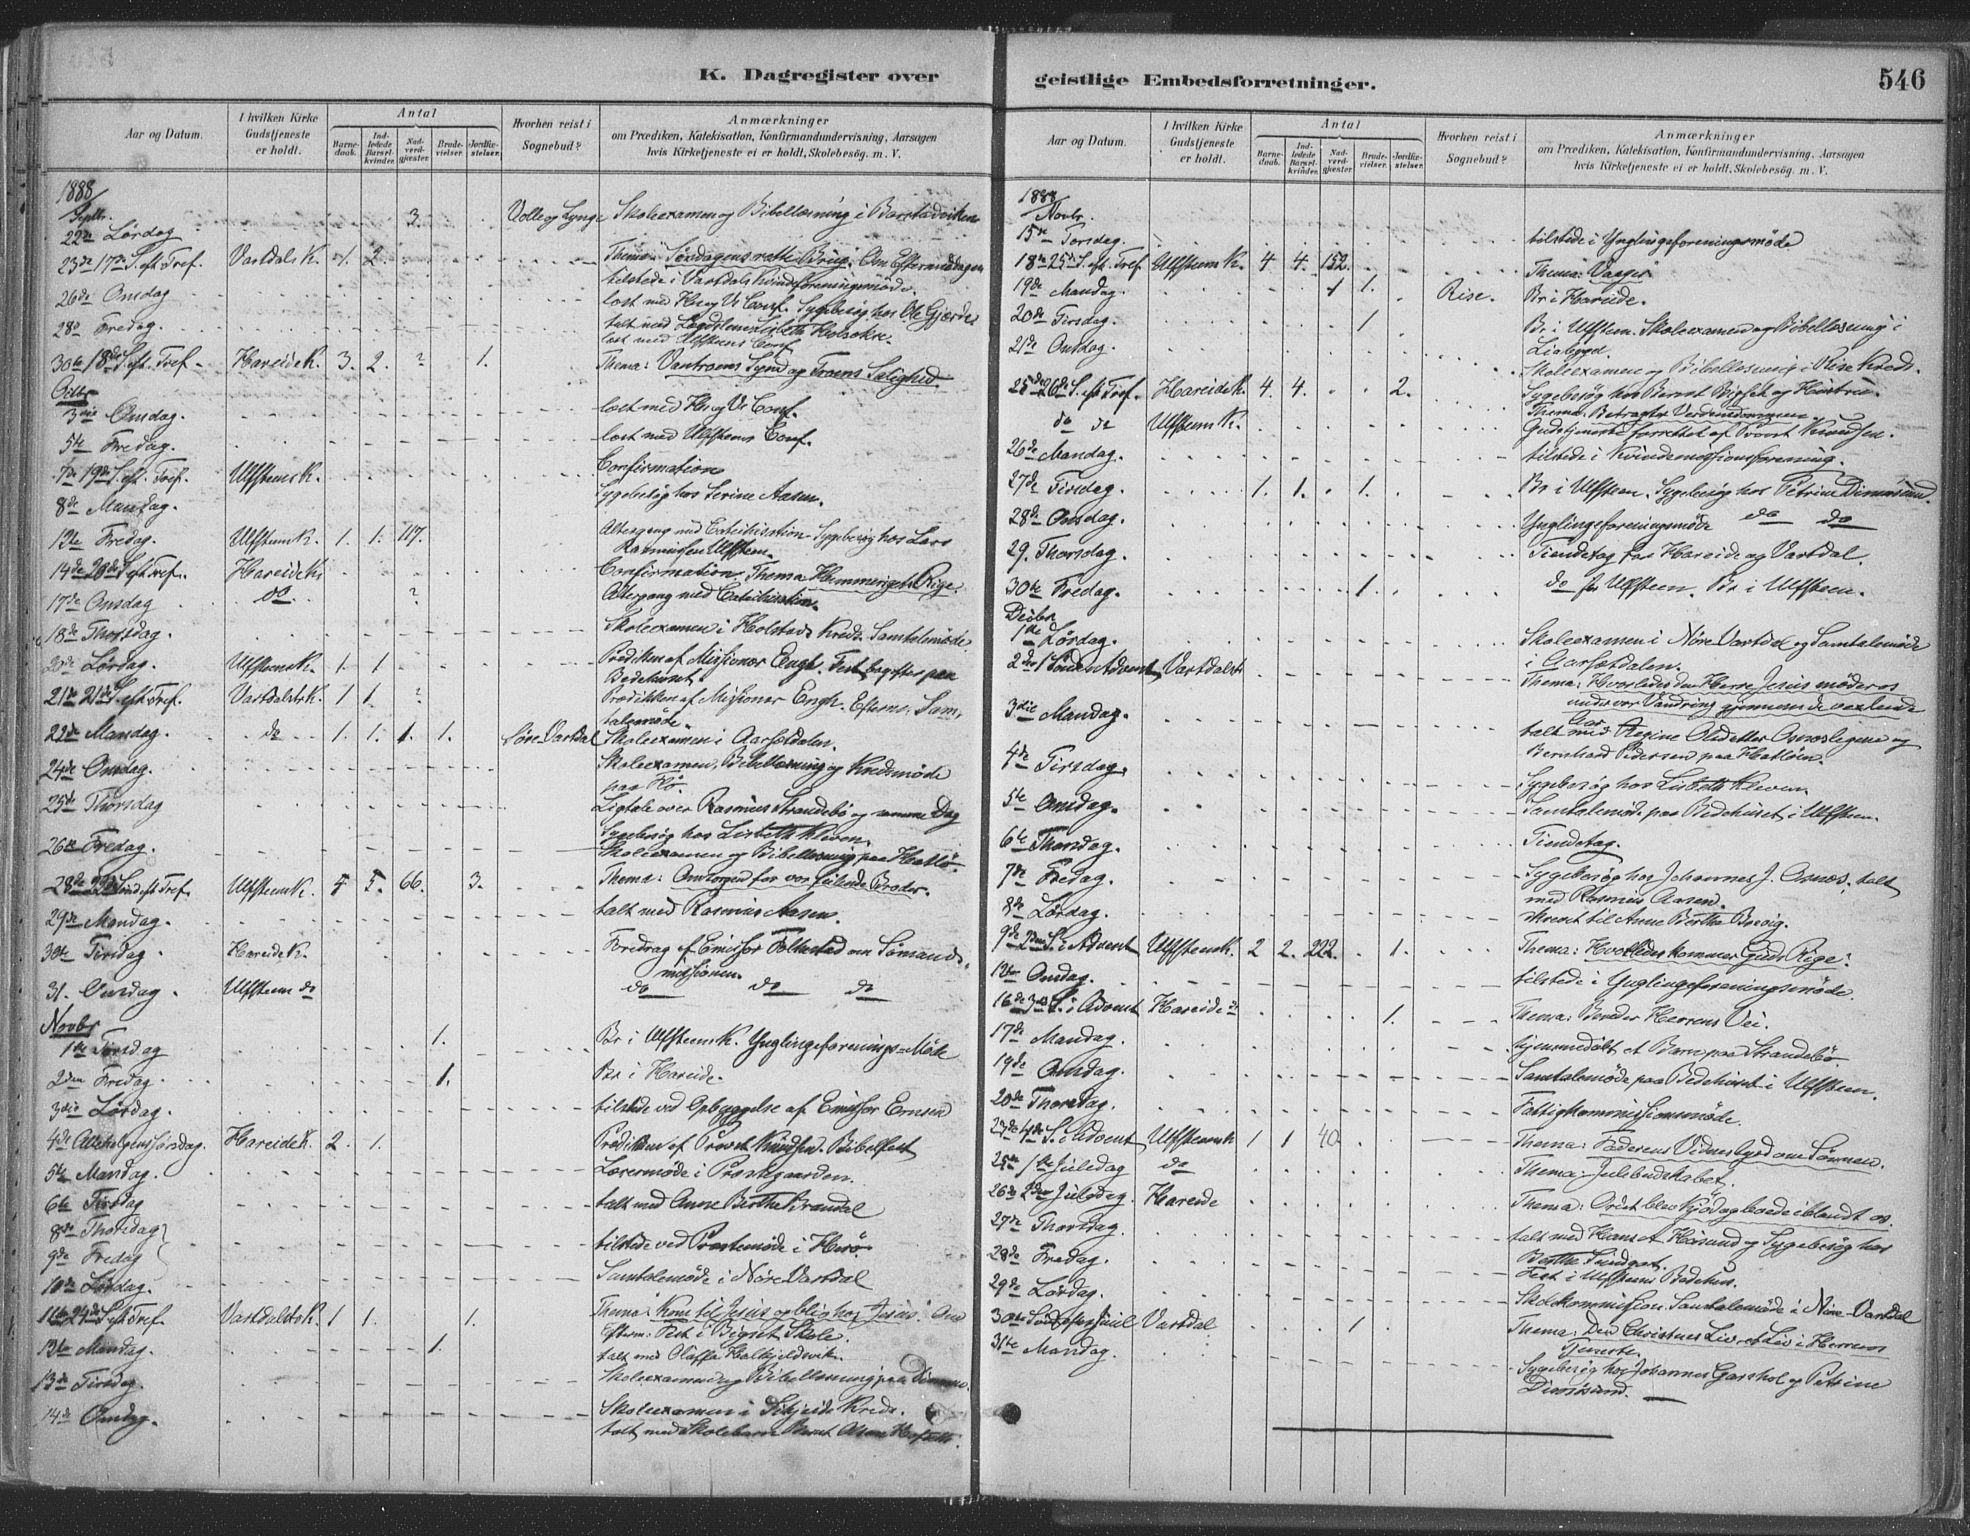 K. Dagregister over
geistlige Embedsforretninger.
546
Aar og Datum.
I hvilken Kirke Gudstjeneste er holdt.
Antal
Barnedaab.
Indledede Barselkvinder.
Nadverdgjæster.
Brudevielser.
Jordfæstelser.
Hvorhen reist i Sognebud?
Anmærkninger
om Prædiken, Katekisation, Konfirmandundervisning, Aarsagen
hvis Kirketjeneste ei er holdt, Skolebesøg. m. V.
1888
Septbr.
22de Lørdag 3. Skoleexamen og Bibellæsning i Barstadviken
23de 17de S. eft. Tref. Vartdals K. 1. 2. Thema: Søndagens rette Brug. Om Eftermiddagen
tilstede i Vartdals Kvindeforeningsmøde.
26de Onsdag læst med H. og V. Conf. Sygebesøg hos Ole
28de Fredag. talt med Lisbeth
læst med Ulfsteens Conf.
30te 18de S. eft. Tref. Hareide K. 3. 2. ? 1. Thema: Vantroens Synd og Troens Salighed.
Octbr.
3die Onsdag. læst med H. og V. Conf.
5te Fredag. læst med Ulfsteens Conf.
7de 19de S. eft. Tref. Ulfsteens K. Confirmation
8de Mandag. Sygebesøg hos Serine Aasen.
12te Fredag. Ulfsteens K. 1. 1. 117. Altergang med Catechisation. Sygebesøg hos Lars
Rasmussen Ulfsteen.
14de 20de S. eft. Tref. Hareide K. Confirmation. Thema Himmeriges Rige.
17de Onsdag do ? Altergang med Catechisation.
18de Thorsdag. Skoleexamen i Holstads Kreds. Samtalemøde.
20de Lørdag. Ulfsteens K. 1. 1. Prædiken af Missionær Engh. Fest paa
Bedehuset.
21de 21de S. eft. Tref. Vartdals K. 1 1. ? Prædiken af Missionær Engh. Efterm. Sam-
talemøde.
22de Mandag. do 1. 1. 1. 1. Søre Vartdal Skoleexamen i Aarsetdalen.
24de Onsdag. Skoleexamen, Bibellæsning og Kredsmøde
paa Hø.
25de Thorsdag Ligtale over Rasmus Strandabø og samme Dag
Sygebesøg hos Lisbeth Kleven.
26de Fredag. Skoleexamen og Bibellæsning paa Hatlø.
28de 22de Sønd eft Tref. Ulfsteens K. 5 5. 66. 3. Thema: Omsorgen for vor feilende Broder.
29de Mandag. talt med Rasmus Aasen.
30te Tirsdag. Hareide K. Foredrag af Emissær Folkestad om Sømands-
missionen.
31. Onsdag. Ulfsteens do do do do
Novbr
1ste Torsdag 1. Br. i Ulfsteens K. Ynglingeforenings-Møde
2den Fredag. 1. Br. i Hareide.
3die Lørdag. tilstede ved Opbyggelse af Emissær Ernsen
4de Allehelgenssøndag. Hareide K. 2. 1. Prædiken af Provst Knudsen. Bibelfest
5te Mandag. Lærermøde i Præstegaarden.
6te Tirsdag talt med Anne Birthe Brandal
8de Thorsdag
9de Fredag tilstede ved Præstemøde i Herø.
10de Lørdag. Samtalemøde i Nøre Vartdal
11te 24de S eft Tref. Vartdals K. 1 1. 1. Thema: Kom til Jesus og bliv hos Jesus! Om
Efterm: Fest i Bigset Skole.
12te Mandag. 1. talt med Olaffa Halkjeldsvik.
13de Tirsdag. Skoleexamen og Bibellæsning paa
14de Onsdag. Skoleexamen i Kreds.
talt med Skolebarn
Aar og Datum.
I hvilken Kirke Gudstjeneste er holdt.
Antal
Barnedaab.
Indledede Barselkvinder.
Nadverdgjæster.
Brudevielser.
Jordfæstelser.
Hvorhen reist i Sognebud?
Anmærkninger
om Prædiken, Katekisation, Konfirmandundervisning, Aarsagen
hvis Kirketjeneste ei er holdt, Skolebesøg. m. V.
1888
Novbr.
15de Torsdag. tilstede i Ynglingeforeningsmøde
18de 25de S. eft. Tref Ulfsteens K. 4 4. 152. Thema: Vaager
19de Mandag. 1 1. Rise. Br. i Hareide.
20de Tirsdag. 1 Br. i Ulfsteen. Skoleexamen og Bibellæsning i
Liabygd.
21de Onsdag. Skoleexamen og Bibellæsning i Rise Kreds.
Sygebesøg hos Bernt Bigset og Hustru.
25de 26de S. eft. Tref. Hareide K. 4. 4. 2. Thema: Betragter Verdensdommen
do do Ulfsteens K. Gudstjeneste forrettet af Provst Knudsen.
26de Mandag. tilstede i Kvindemissionsforening.
27de Tirsdag. 1. 1. 1. Br. i Ulfsteen. Sygebesøg hos Petrine Dimmesund.
28de Onsdag. Ynglingeforeningsmøde do do
29. Thorsdag. Tiendetag fra Hareide og Vartdal.
30te Fredag. 1. do fra Ulfsteen. Br. i Ulfsteen.
Decbr
1ste Lørdag. Skoleexamen i Nøre Vartdal og Samtalemøde
i Aarsetdalen.
2den 1 Sønd i Advent Vartdals K Thema: Hvorledes den Herre Jesus møder os
under vor Vandring gjennem de vexlende
Aar
3die Mandag. talt med Regine og
Bernhard Pedersen paa Hatløen.
4de Tirsdag Sygebesøg hos Lisbeth Kleven
5te Onsdag. Samtalemøde paa Bedehuset i Ulfsteen.
6te Thorsdag. Tiendetag.
7de Fredag. Sygebesøg hos Johannes J. Osnæs. talt
med Rasmus Aasen.
8de Lørdag. skrevet til Anne Berthe
9de 2den S. i Advent Ulfsteens K. 2 2. 222. 1. Thema: Hvorledes kommer Guds Rige?
12te Onsdag. tilstede i Ynglingeforeningsmøde.
16de 3die S. i Advent Hareide K 1. Thema: Bereder Herrens Vei.
17de Mandag. hjemmedøbt et Barn paa Strandabø
19de Onsdag. Samtalemøde paa Bedehuset i Ulfsteen.
20de Thorsdag. Fattigkommissionsmøde.
23de 4de S. i Advent Ulfsteens K 1 1 40 Thema: Faderens Vidnesbyrd om Sønnen.
25de 1ste Juledag do Thema: Julebudskabet.
26de 2den Juledag. Hareide Thema: Ordet blev Kjød og boede iblandt os.
27de Thorsdag. talt med Hans A. Hasund og Sygebesøg hos
Berthe Sundgot.
28de Fredag. Fest i Ulfsteens Bedehus.
29de Lørdag. Skolekommission. Samtalemøde i Nøre-Vartdal
30te Søndag efter Juul Vartdal 1 Thema: Den Christnes Liv, et Liv i Herrens
Tjeneste.
31te Mandag. Sygebesøg hos Johannes Garshol og Petrine
Dimmesund.